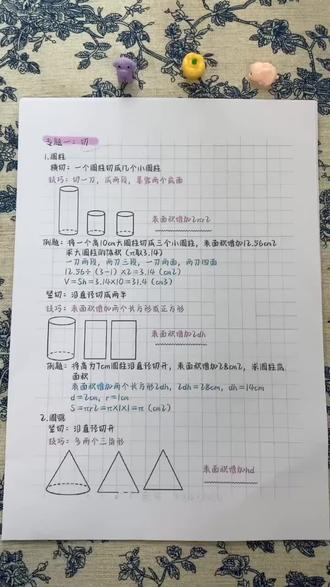 专题一：切
1.圆柱
横切：一个圆柱切成几个小圆柱
技巧：切一刀，成两段，暴露两个底面
表面积增加2πr2
例题：将一个高10cm大圆柱切成三个小圆柱，表面积增加12.56cm2
求大圆柱的体积（π取3.14）
一刀两段，两刀三段，一刀两面，两刀四面
12.56÷（3-1）×2=3.14（cm2）
V=Sh=3.14×10=31.4（cm3）
竖切：沿直径切成两半
技巧：表面积增加两个长方形或正方形
表面积增加2dh
例题：将高为7cm圆柱沿直径切开，表面积增加28cm2，求圆柱底
面积
表面积增加两个长方形2dh，2dh=28cm，dh=14cm
d=2cm，r=1cm
S=πr2=π×1×1=π（cm2）
2.圆锥
竖切：沿直径切开
技巧：多两个三角形
表面积增加hd